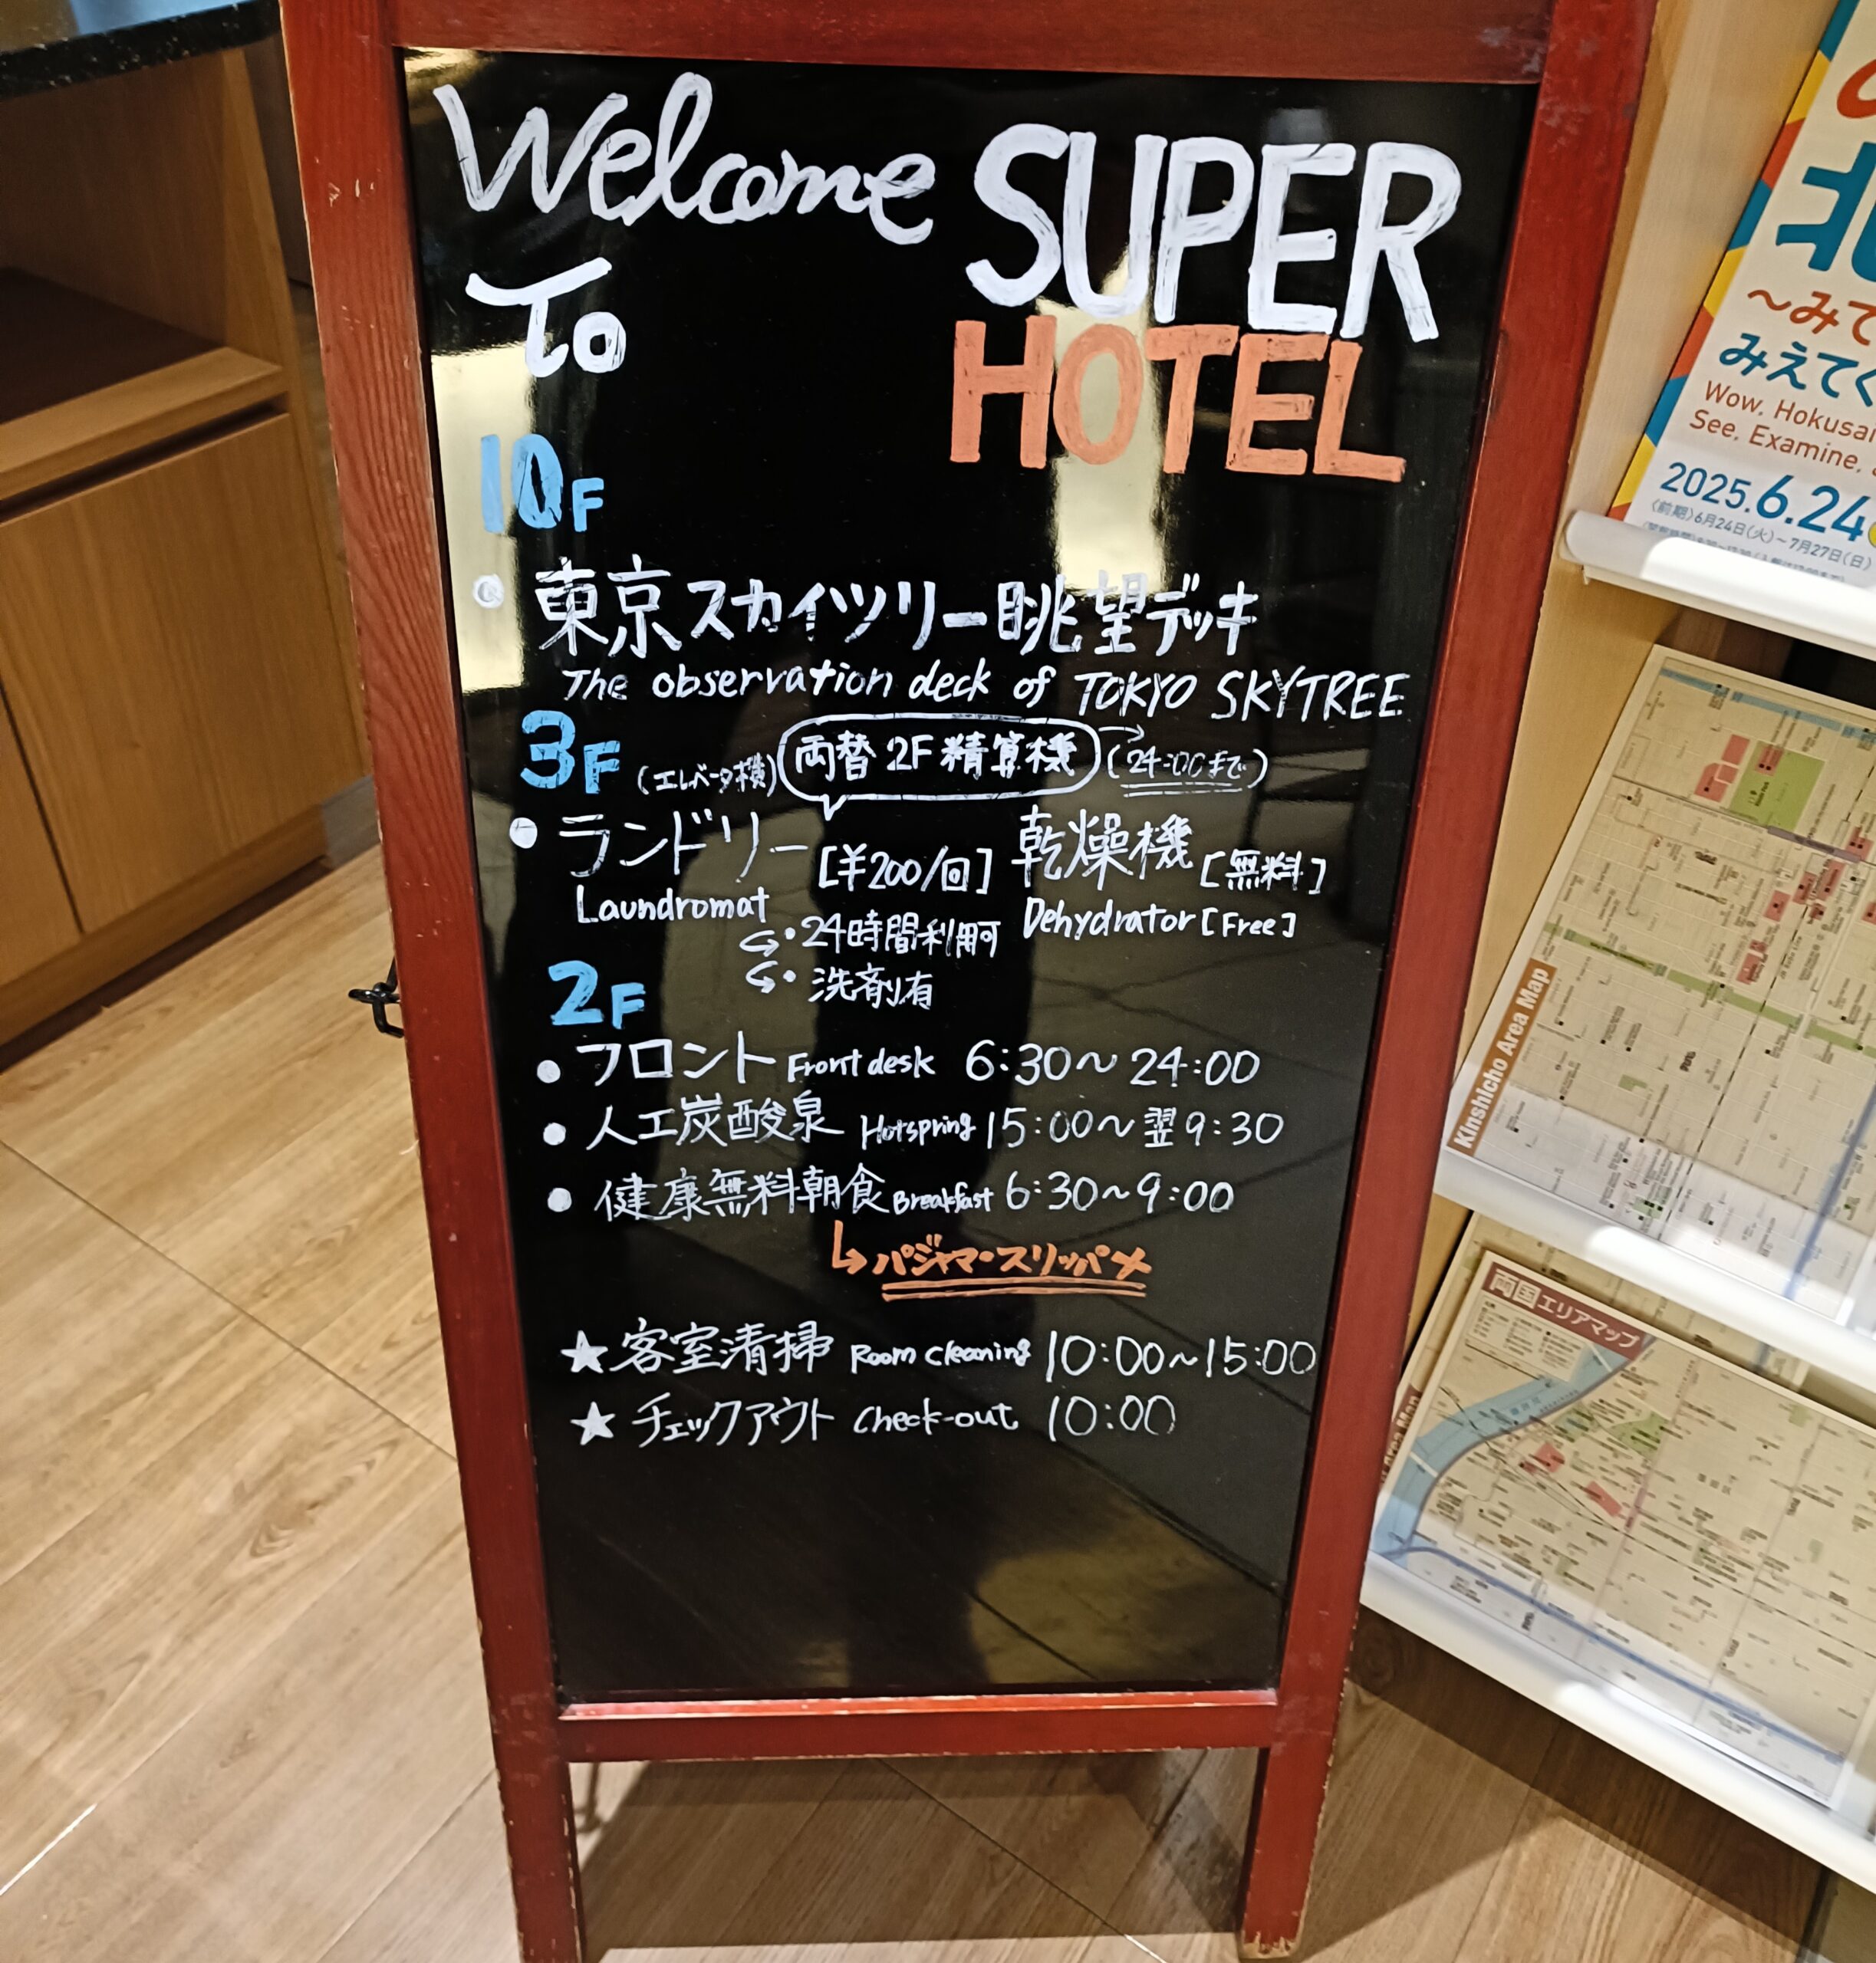 Welcome
To
SUPER
HOTEL
10F
• 東京スカイツリー眺望デッキ
The observation deck of TOKYO SKYTREE
3F (エレベータ横) 両替 2F 精算機 → (24:00まで)
• ランドリー [¥200/回] 乾燥機 [無料]
Laundromat Dehydrator [Free]
• 24時間利用可
• 洗剤有
2F
• フロント Front desk 6:30～24:00
• 人工炭酸泉 Hotspring 15:00～翌9:30
• 健康無料朝食 Breakfast 6:30～9:00
↳パジャマ・スリッパ✕
★ 客室清掃 Room cleaning 10:00～15:00
★ チェックアウト Check-out 10:00
～みて
みえてく
Wow, Hokusai
See, Examine,
2025.6.24
〈前期〉6月24日(火)～7月27日(日)
Kinshicho Area Map
両国エリアマップ
Area Map